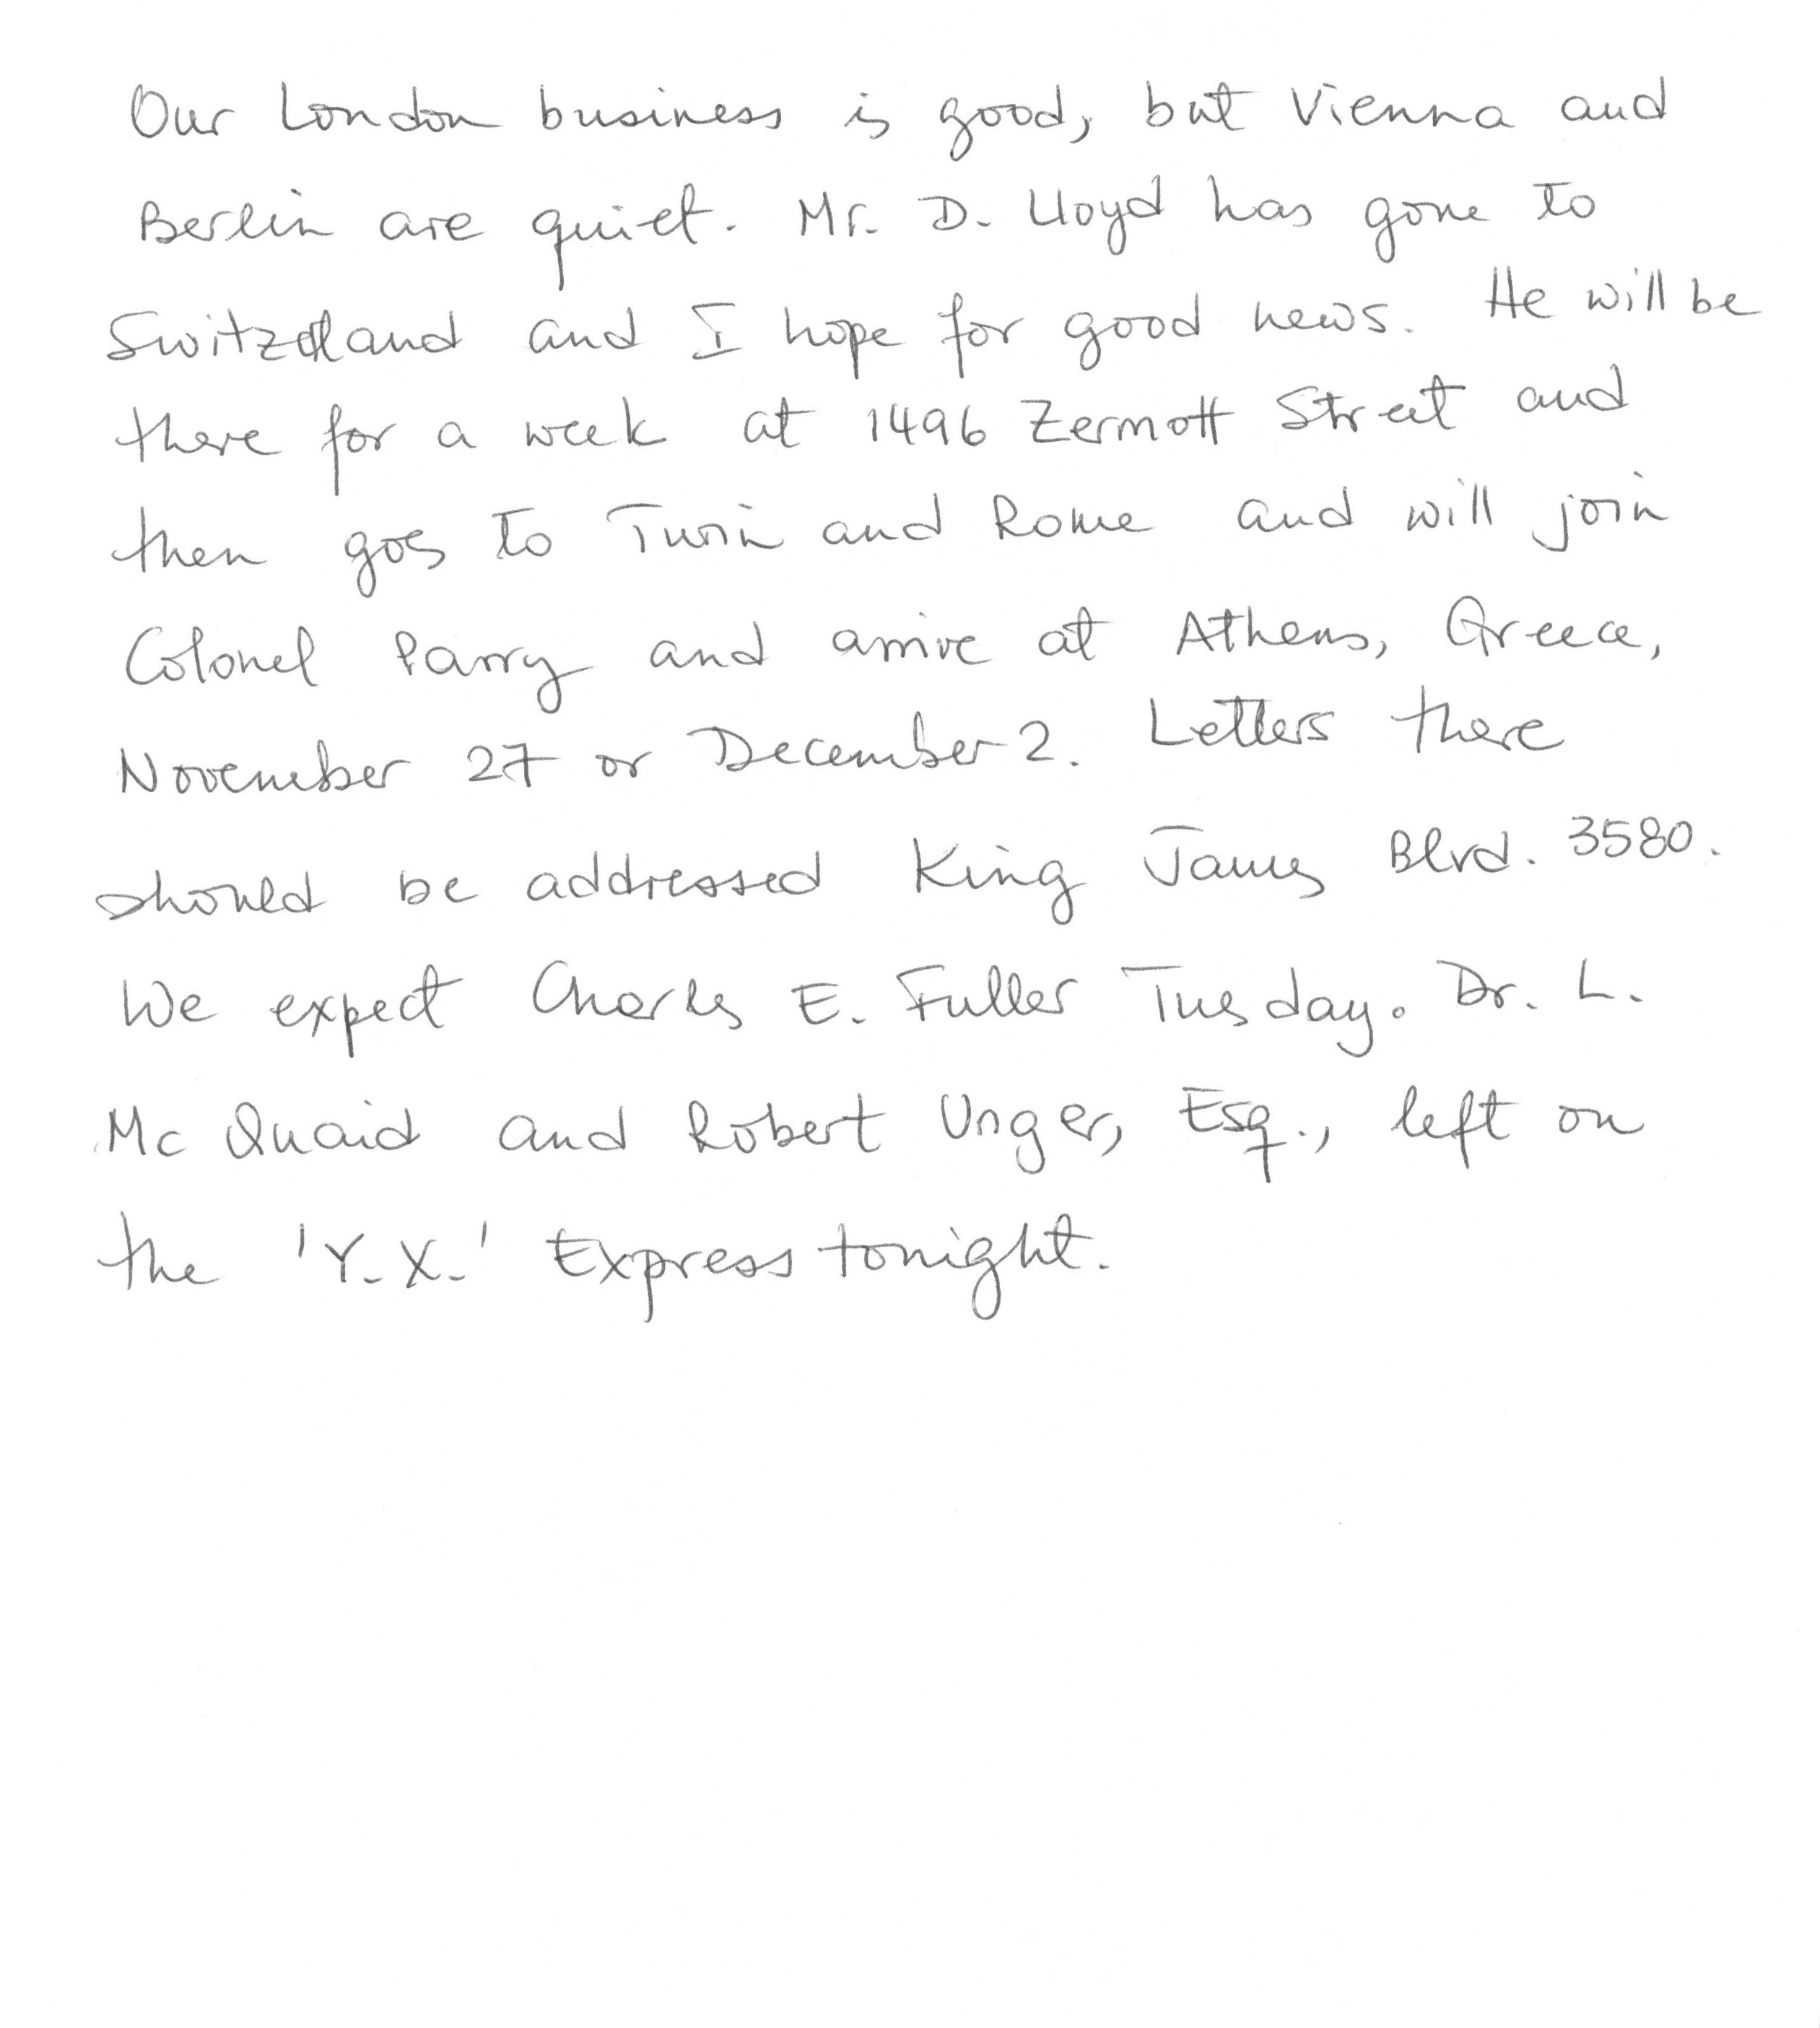 Our London business is good, but Vienna and
Berlin are quiet. Mr. D. Lloyd has gone to
Switzerland and I hope for good news. He will be
there for a week at 1496 Zermott Street and
then goes to Turin and Rome and will join
Colonel Parry and arrive at Athens, Greece,
November 27 or December 2. Letters there
should be addressed King James Blvd. 3580.
We expect Charles E. Fuller Tuesday. Dr. L.
Mc Quaid and Robert Unger, Esq., left on
the 'Y.X.' Express tonight.